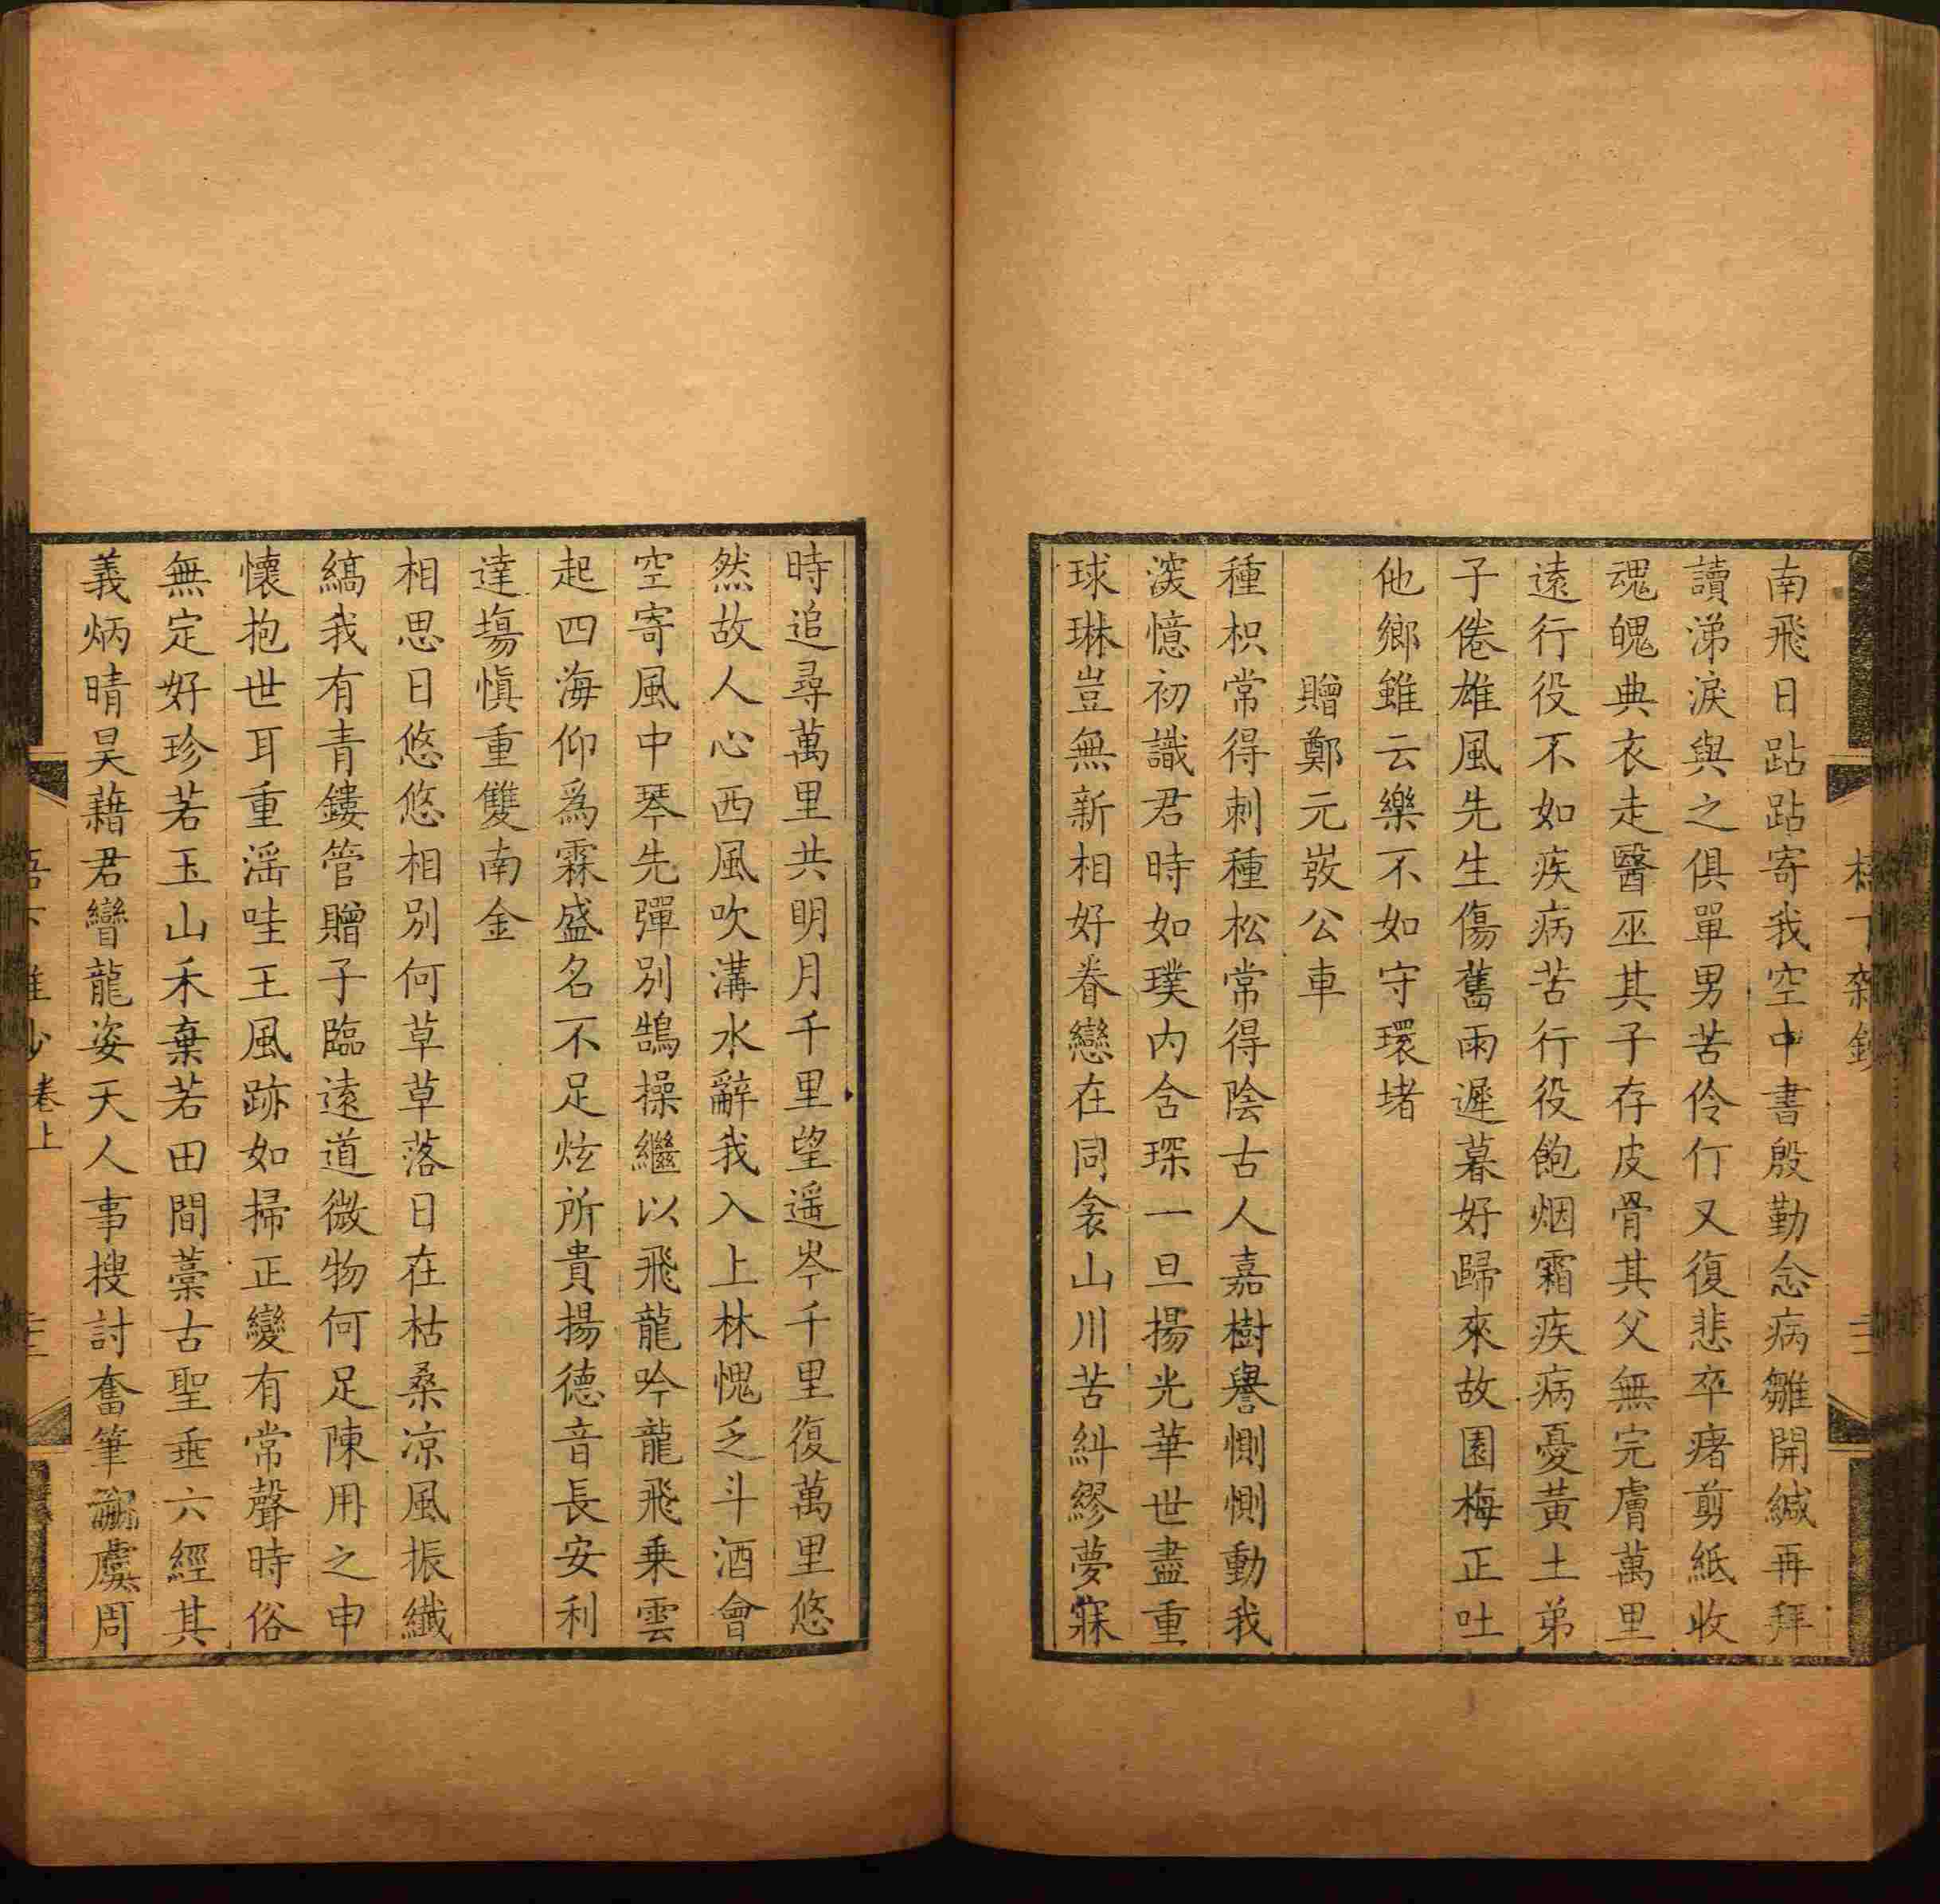 南飛日跕跕寄我空中書殷勤念病雛開緘再拜
讀涕淚與之俱單男苦伶仃又復悲卒瘏剪紙收
魂魄典衣走醫巫其子存皮骨其父無完膚萬里
遠行役不如疾病苦行役飽烟霜疾病憂黃土弟
子倦雄風先生傷舊雨遲暮好歸來故園梅正吐
他鄉雖云樂不如守環堵
贈鄭元敭公車
種枳常得刺種松常得陰古人嘉樹譽惻惻動我
淚憶初識君時如璞內含琛一旦揚光華世盡重
球琳豈無新相好眷戀在同衾山川苦糾繆夢寐
時追尋萬里共明月千里望遥岑千里復萬里悠
然故人心西風吹溝水辭我入上林愧乏斗酒會
空寄風中琴先彈別鵠操繼以飛龍吟龍飛乗雲
起四海仰爲霖盛名不足炫所貴揚德音長安利
達塲愼重雙南金
相思日悠悠相別何草草落日在枯桑凉風振纎
縞我有青鏤管贈子臨遠道微物何足陳用之申
懷抱世耳重滛哇王風跡如掃正變有常聲時俗
無定好珍若玉山禾棄若田間藁古聖垂六經其
義炳晴昊藉君鸞龍姿天人事搜討奮筆嗣虞周
卷上